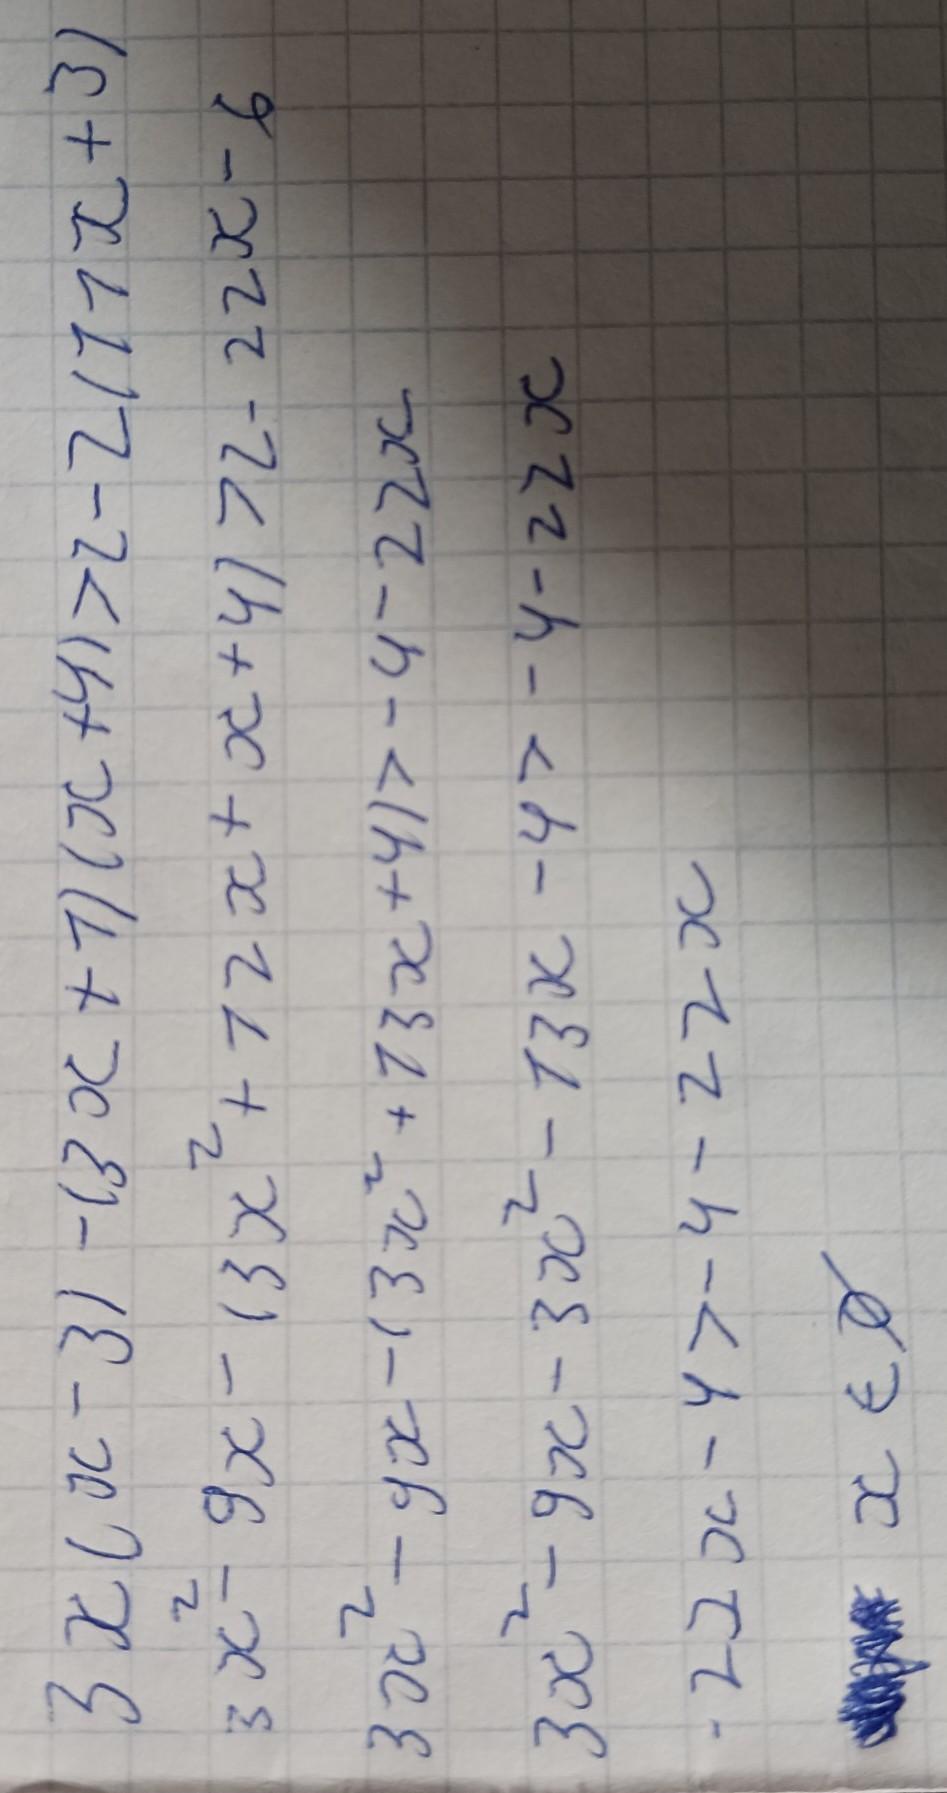 3x(x-3)-(3x+1)(x+4)>2-2(11x+3)
3x²-9x-(3x²+12x+x+4)>2-22x-6
3x²-9x-(3x²+13x+4)>-4-22x
3x²-9x-3x²-13x-4>-4-22x
-22x-4>-4-22x
x∈∅